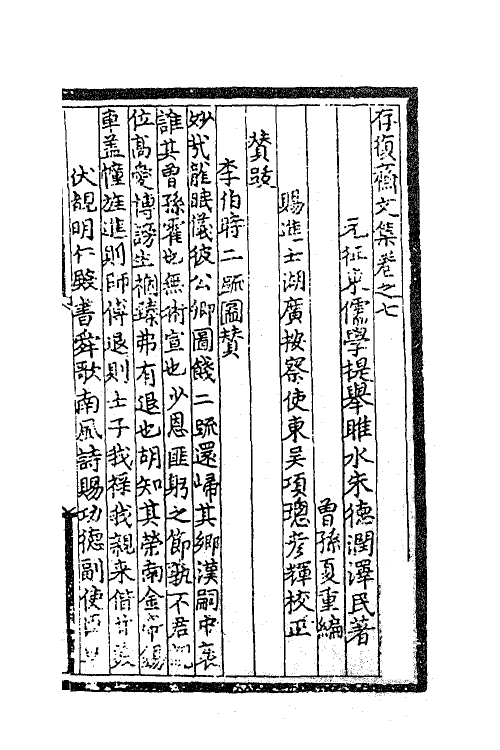 存復齋文集卷之七
元征東儒學提舉睢水朱德潤澤民著
曾孫夏重編
賜進士湖廣按察使東吳項璁彥輝校正
贊跋
李伯時二疏圖贊
妙哉龍眠儀彼公卿圖餞二疏還歸其鄉漢嗣中衰
誰其曾孫霍也無術宣也少恩匪躬之節孰不君
位高愛博謗生禍臻弗有退也胡知其榮南金帝錫
車盖幢旌進則師傅退則士子我祿我親来偕
伏覩明仁殿書舜歌南風詩賜功德副使